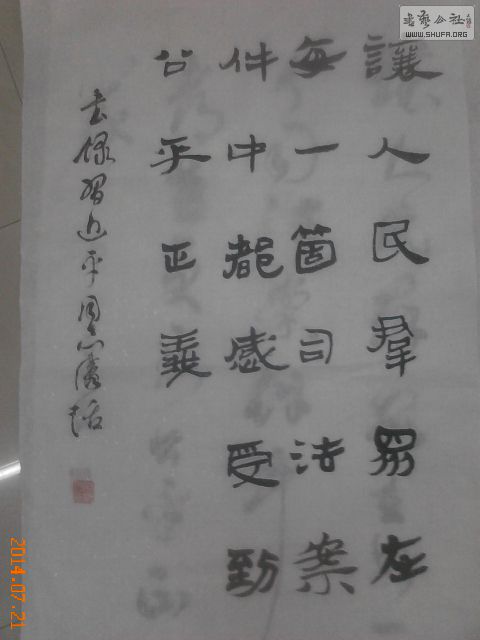 讓人民羣眾在
每一箇司法案
件中都感受到
公平正義
錄習近平同志講話
書藝公社
WWW.SHUFA.ORG
2014.07.21